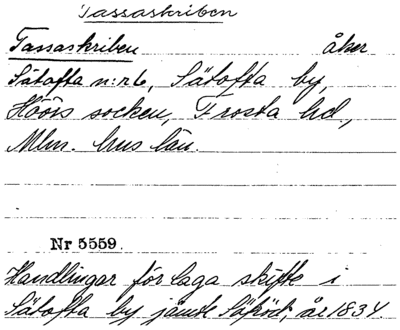 Tassaskriben
Tassaskriben åker
Sätofta n:r 6, Sätofta by,
Höörs socken, Frosta hd,
Mlm. hus län.
Nr 5559.
Handlingar för laga skifte i
Sätofta by jämte år 1834.